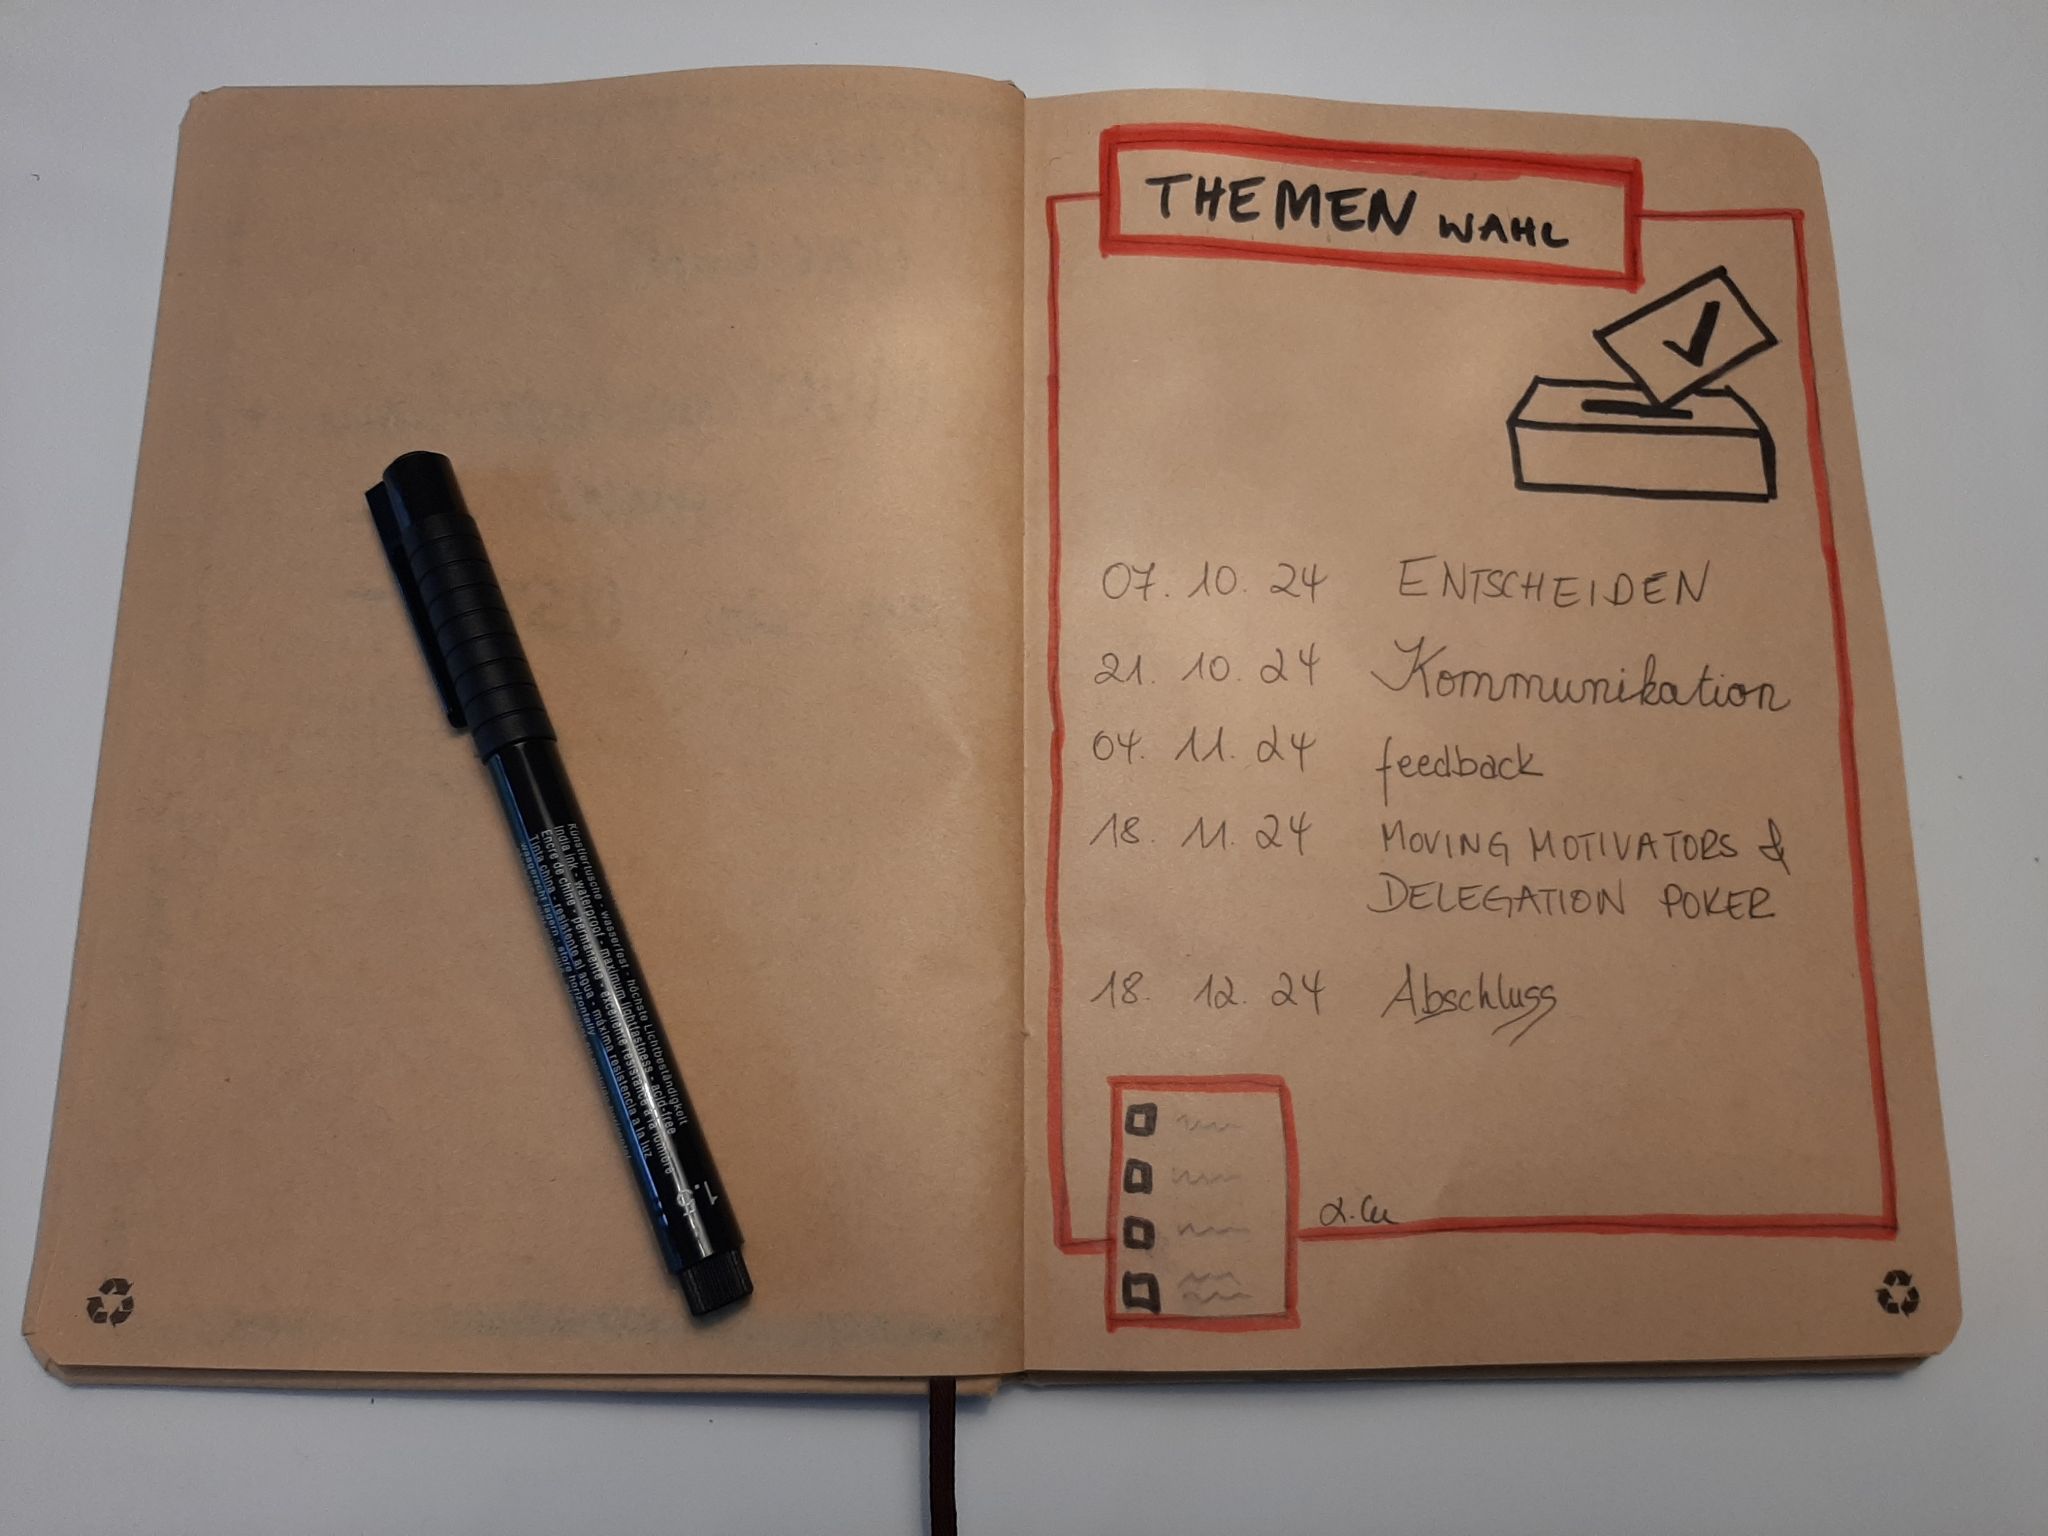 THEMEN WAHL
07. 10. 24 ENTSCHEIDEN
21. 10. 24 Kommunikation
04. 11. 24 feedback
18. 11. 24 MOVING MOTIVATORS &
DELEGATION POKER
18. 12. 24 Abschluss
Künstlertusche - wasserfest - höchste Lichtbeständigkeit
India ink - waterproof - maximum lightfastness - acid-free
Encre de chine - permanente - excellente résistance à la lumière
Tinta china - resistente al agua - máxima resistencia a la luz
waagerecht lagern - store horizontally
1.5